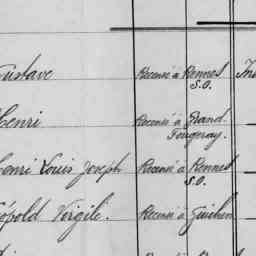 Gustave Recensé à Rennes
S.O.
Henri Recensé à Grand
Fougeray.
Henri Louis Joseph Recensé à Rennes
S.O.
Léopold Virgile. Recensé à Guichen